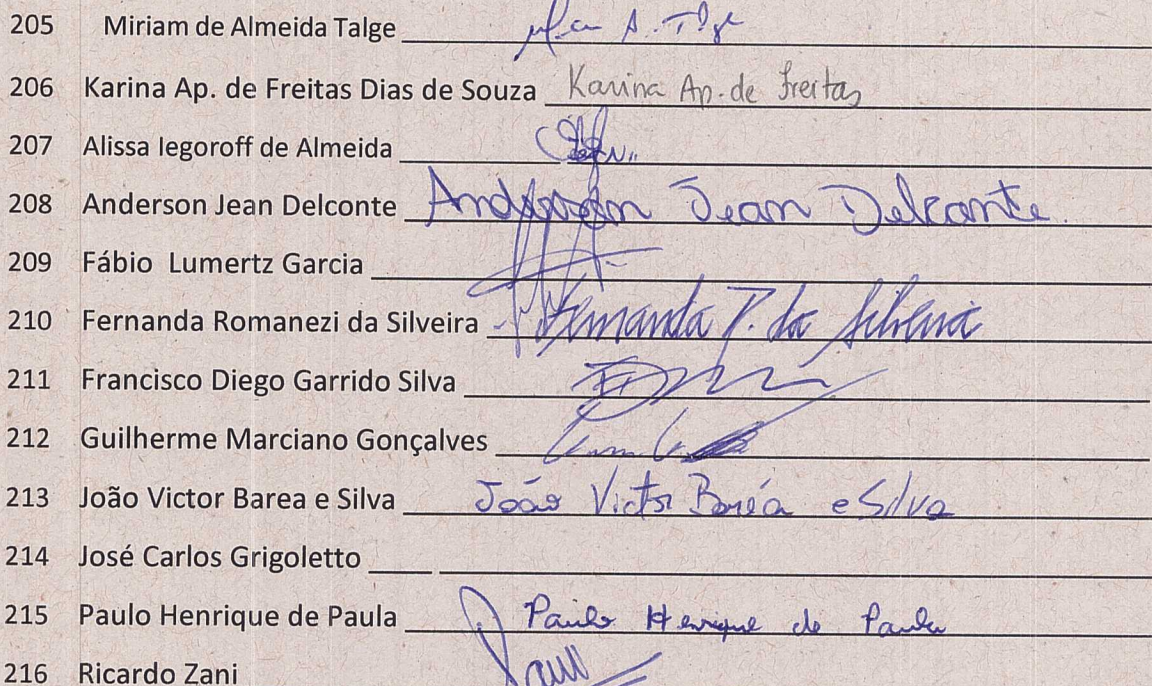 205 Miriam de Almeida Talge A. Talge
206 Karina Ap. de Freitas Dias de Souza Karina Ap. de Freitas
207 Alissa Iegoroff de Almeida
208 Anderson Jean Delconte Anderson Jean Delconte
209 Fábio Lumertz Garcia
210 Fernanda Romanezi da Silveira Fernanda R. da Silveira
211 Francisco Diego Garrido Silva
212 Guilherme Marciano Gonçalves
213 João Victor Barea e Silva João Victor Baréa e Silva
214 José Carlos Grigoletto
215 Paulo Henrique de Paula Paulo Henrique de Paula
216 Ricardo Zani